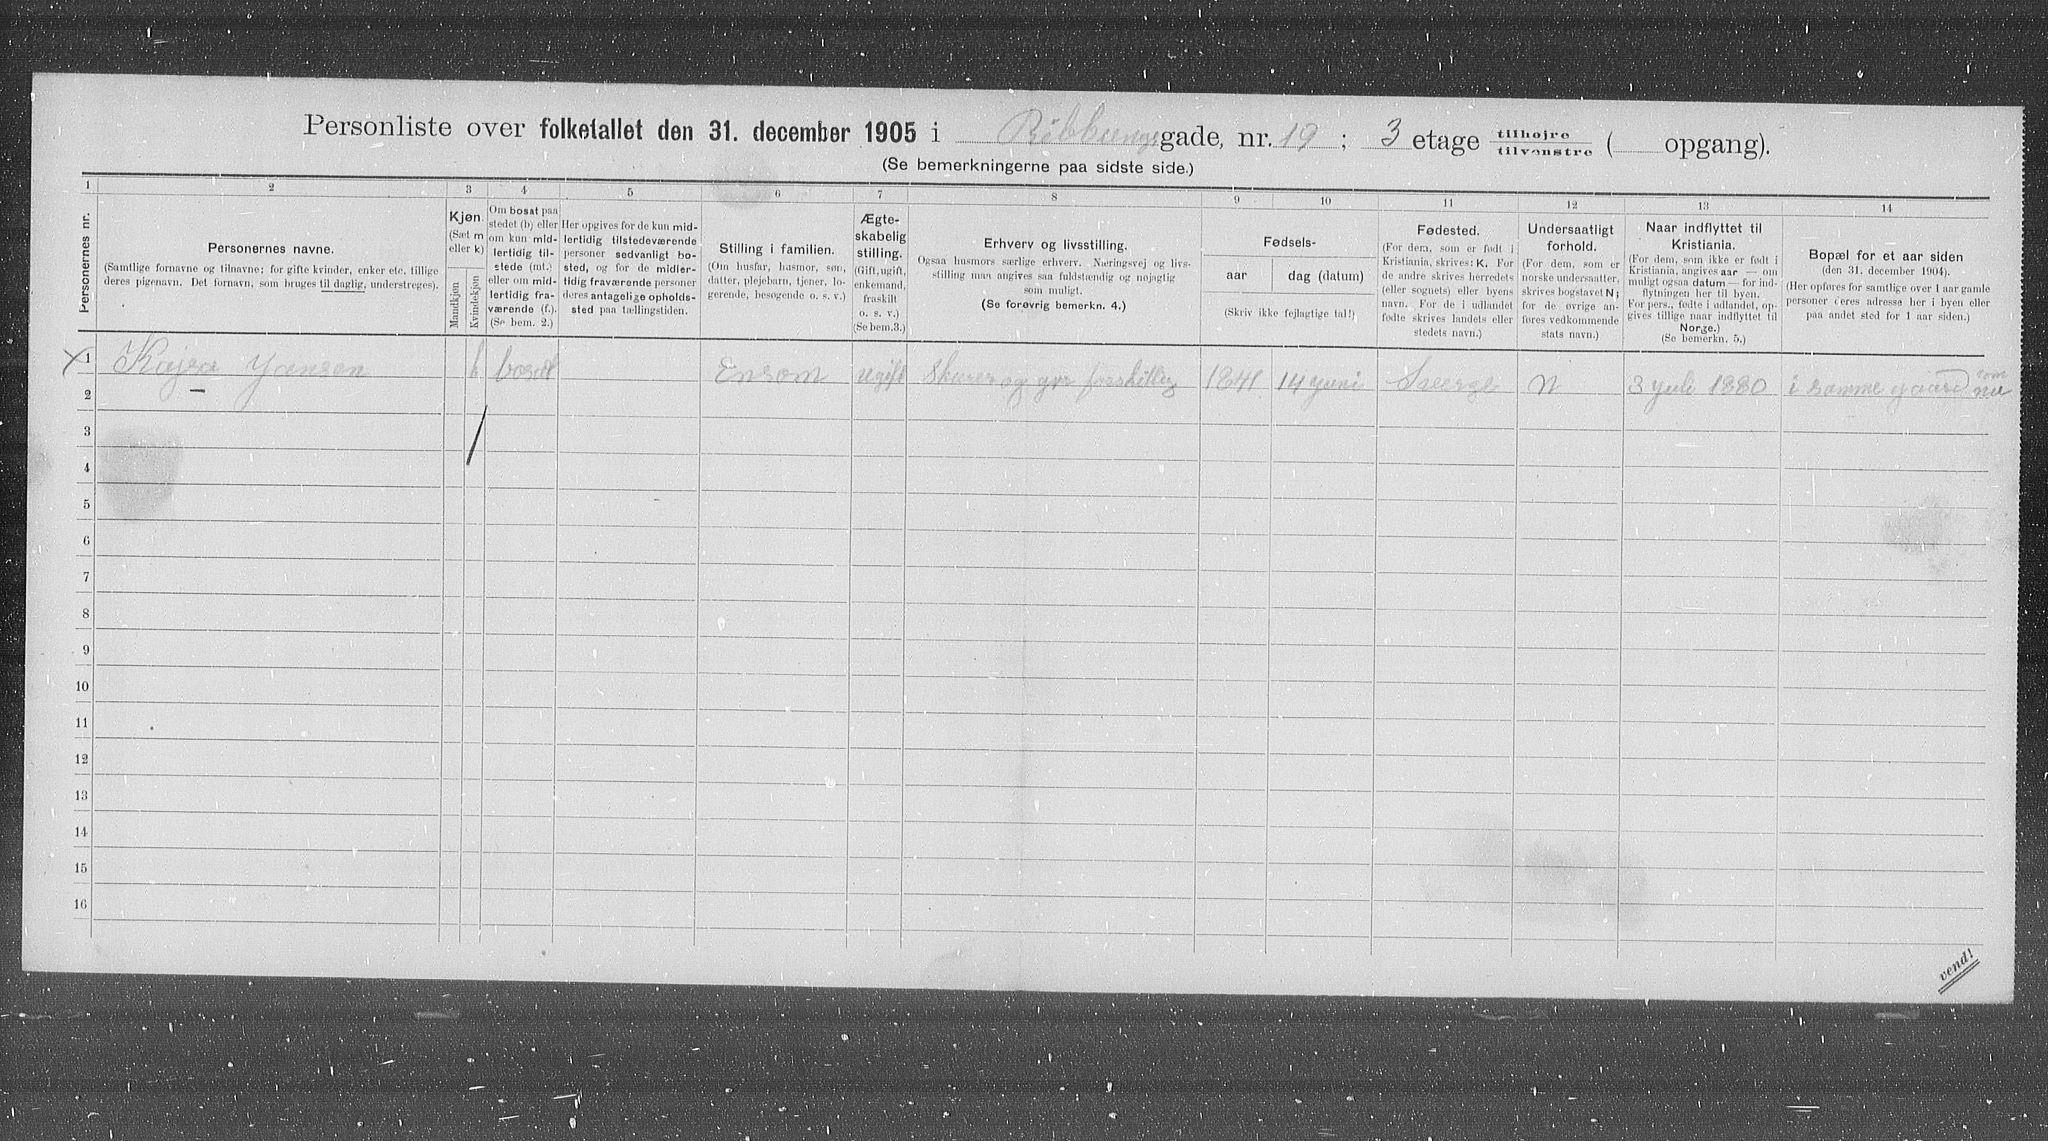 Personliste over folketallet den 31. december 1905 i Ribbungs gade, nr. 19 ; 3 etage tilhøjre tilvenstre ( opgang).
(Se bemerkningerne paa sidste side.)
1 2 3 4 5 6 7 8 9 10 11 12 13 14
Personernes nr.
Personernes navne.
(Samtlige fornavne og tilnavne; for gifte kvinder, enker etc. tillige
deres pigenavn. Det fornavn, som bruges til daglig, understreges).
Kjøn.
(Sæt m
eller k)
Mandkjøn
Kvindekjøn
Om bosat paa
stedet (b) eller
om kun mid-
lertidig til-
stede (mt.)
eller om mid-
lertidig fra-
værende (f.).
(Se bem. 2.)
Her opgives for de kun mid-
lertidig tilstedeværende
personer sedvanligt bo-
sted, og for de midler-
tidig fraværende personer
deres antagelige opholds-
sted paa tællingstiden.
Stilling i familien.
(Om husfar, hasmor, søn,
datter, plejebarn, tjener, lo-
gerende, besøgende o. s. v.)
Ægte-
skabelig
stilling.
(Gift, ugift,
enkemand,
fraskilt
o. s. v.)
(Se bem.3.)
Erhverv og livsstilling.
Ogsaa husmors særlige erhverv. Næringsvej og livs-
stilling maa angives saa fuldstændig og nøjagtig
som muligt.
(Se forøvrig bemerkn. 4.)
Fødsels-
aar
dag (datum)
(Skriv ikke fejlagtige tal!)
Fødested.
(For dem, som er født i
Kristiania, skrives: K. For
de andre skrives herredets
(eller sognets) eller byens
navn. For de i udlandet
fødte skrives landets eller
stedets navn.)
Undersaatligt
forhold.
(For dem, som er
norske undersaatter,
skrives bogstavet N;
for de øvrige an-
føres vedkommende
stats navn.)
Naar indflyttet til
Kristiania.
(For dem, som ikke er født i
Kristiania, angives aar — om
muligt ogsaa datum — for ind-
flytningen her til byen.
For pers., fødte i udlandet, op-
gives tillige naar indflyttet til
Norge.)
(Se bemerkn. 5.)
Bopæl for et aar siden
(den 31. december 1904).
(Her opføres for samtlige over 1 aar gamle
personer deres adresse her i byen eller
paa andet sted for 1 aar siden.)
1 Kajsa Jansen k bosat Ensom ugift Skurer og gør forskellig 1841 14 juni Sverge N 3 juli 1880 i samme gaard som nu
2
3
4
5
6
7
8
9
10
11
12
13
14
15
16
vend!